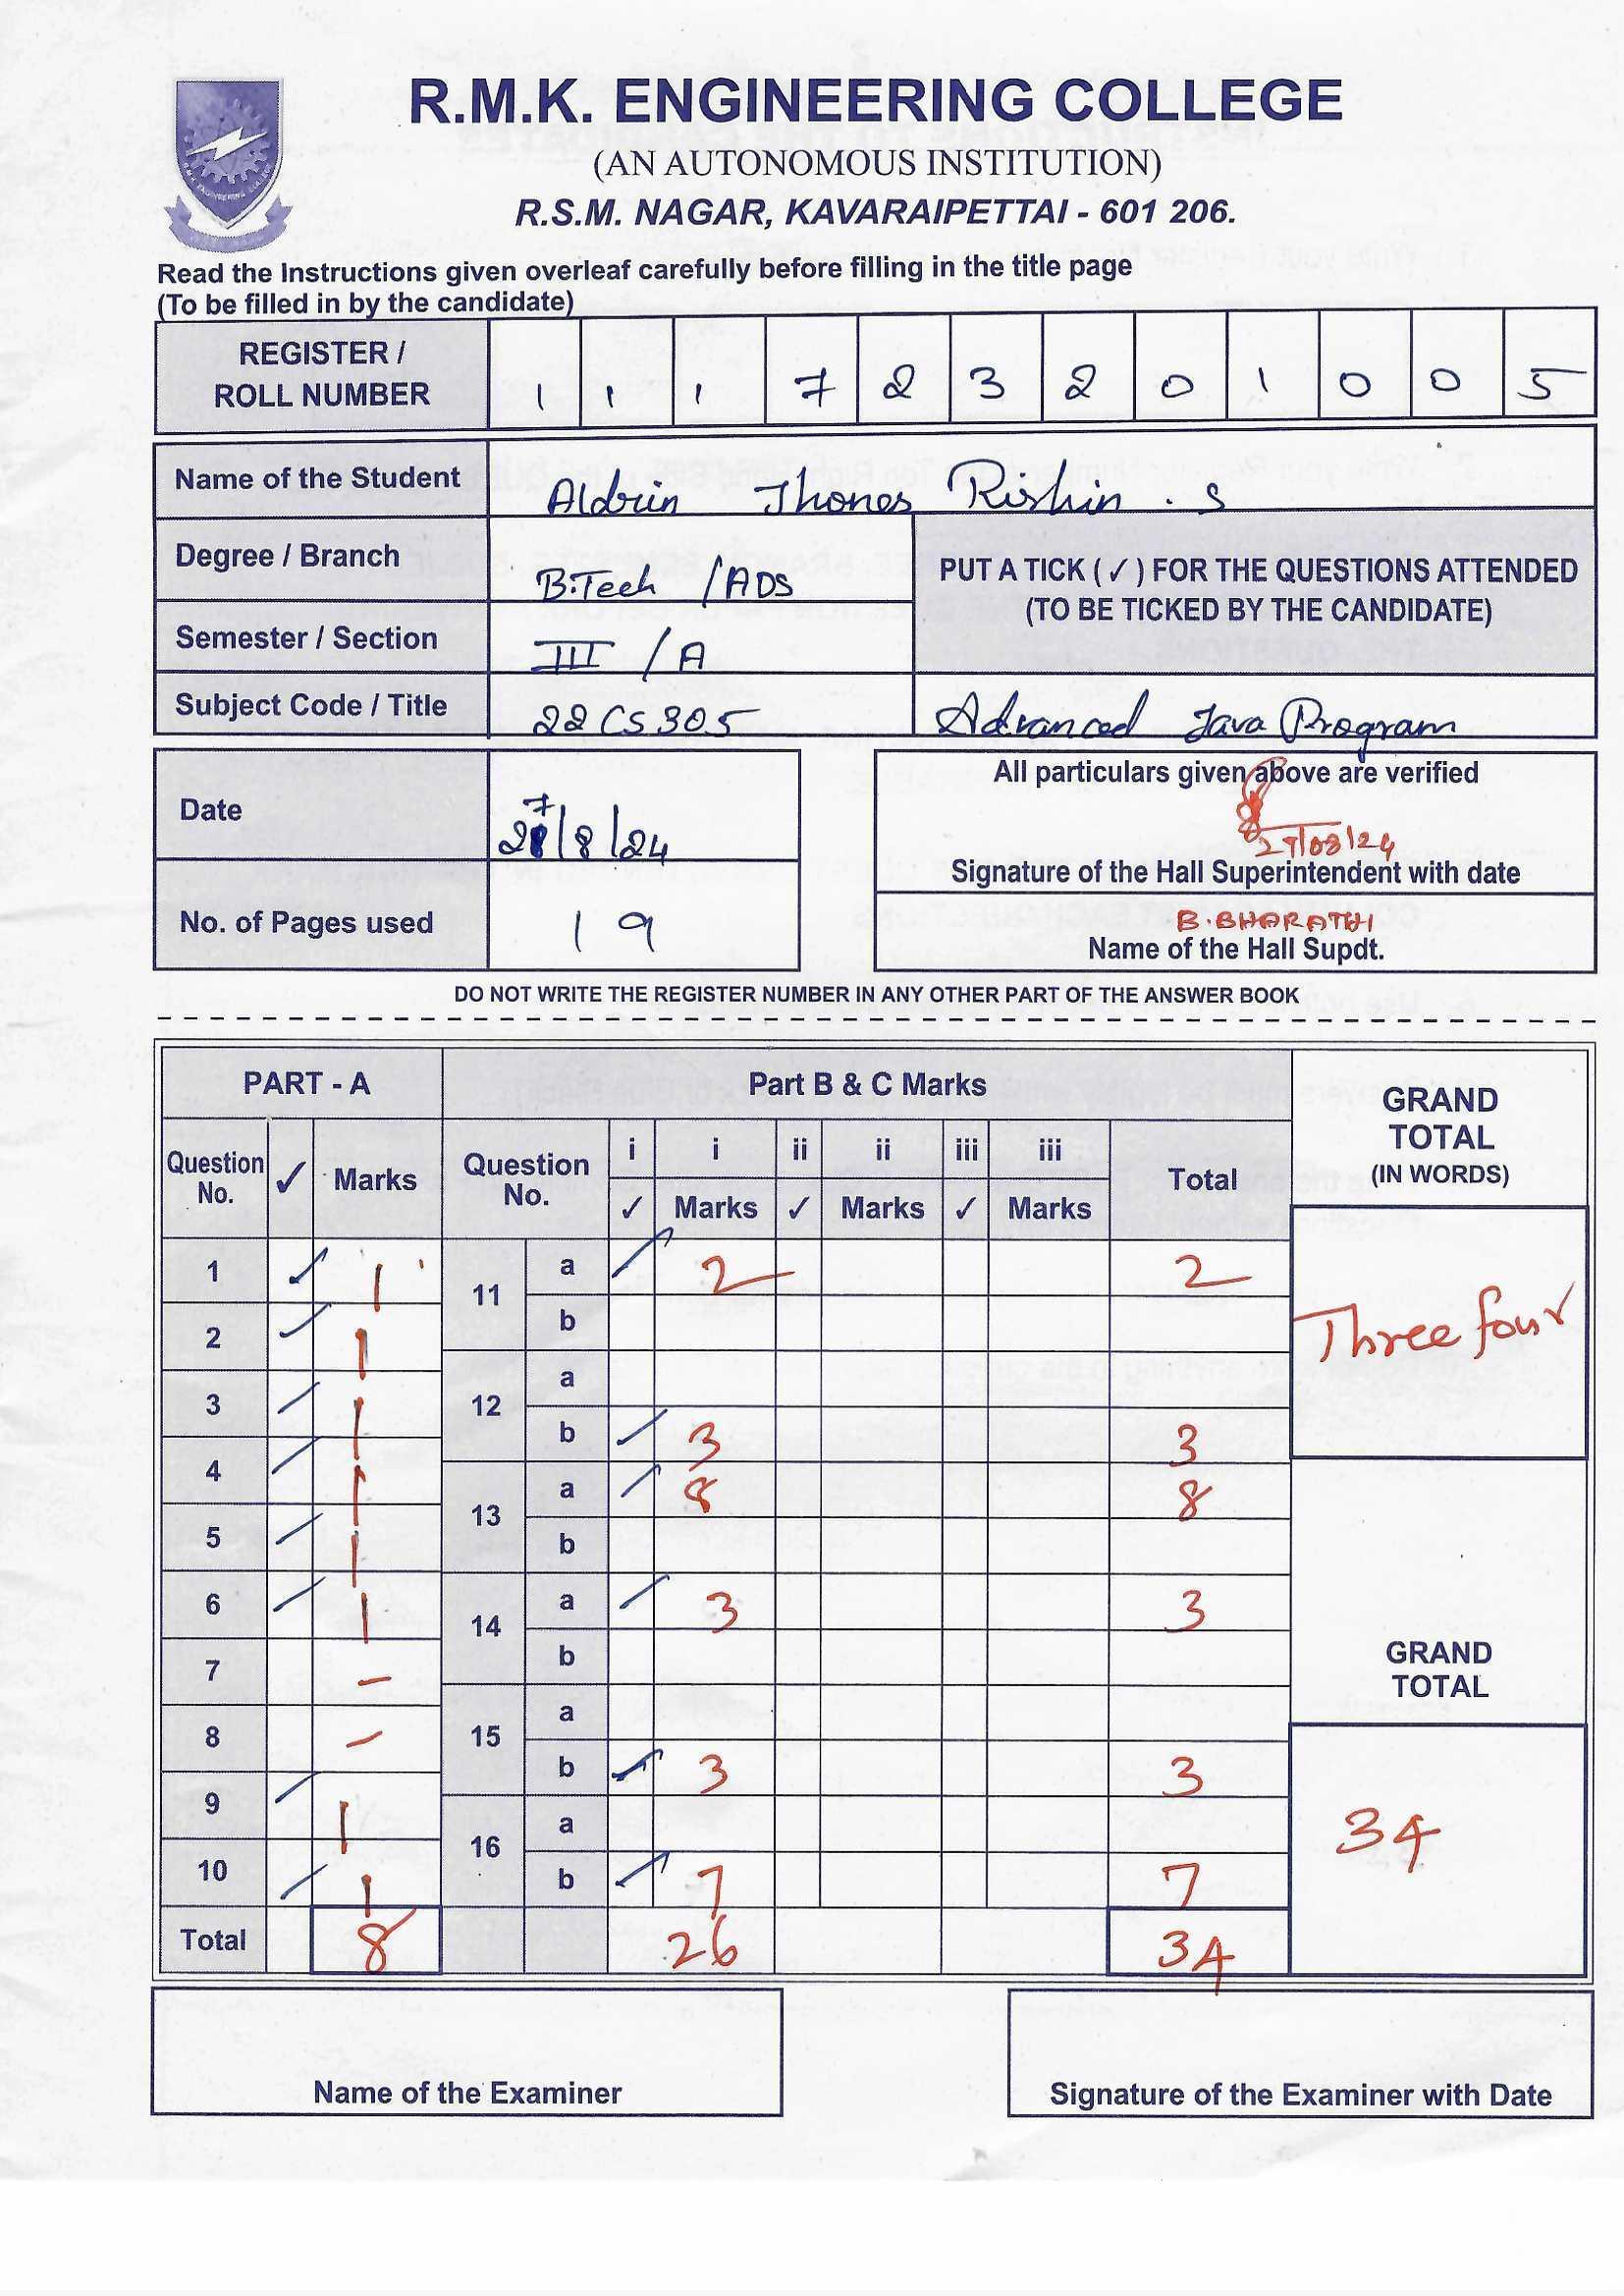 R.M.K. ENGINEERING COLLEGE
(AN AUTONOMOUS INSTITUTION)
R.S.M. NAGAR, KAVARAIPETTAI - 601 206.
Read the Instructions given overleaf carefully before filling in the title page
(To be filled in by the candidate)
REGISTER / ROLL NUMBER 1 1 1 7 2 3 2 0 1 0 0 5
Name of the Student Aldrin Jhones Rishin . S
Degree / Branch B.Tech / ADS
PUT A TICK ( ✓ ) FOR THE QUESTIONS ATTENDED
(TO BE TICKED BY THE CANDIDATE)
Semester / Section III / A
Subject Code / Title 22CS305 Advanced Java Program
Date 27/8/24
All particulars given above are verified
27/08/24
Signature of the Hall Superintendent with date
No. of Pages used 19
B.BHARATHI
Name of the Hall Supdt.
DO NOT WRITE THE REGISTER NUMBER IN ANY OTHER PART OF THE ANSWER BOOK
PART - A
Question No. ✓ Marks
1 ✓ 1
2 ✓ 1
3 ✓ 1
4 ✓ 1
5 ✓ 1
6 ✓ 1
7 –
8 –
9 ✓ 1
10 ✓ 1
Total 8
Part B & C Marks
Question No. i i ii ii iii iii Total
✓ Marks ✓ Marks ✓ Marks
11 a ✓ 2 2
b
12 a
b ✓ 3 3
13 a ✓ 8 8
b
14 a ✓ 3 3
b
15 a
b ✓ 3 3
16 a
b ✓ 7 7
26 34
GRAND TOTAL
(IN WORDS)
Three four
GRAND TOTAL
34
Name of the Examiner
Signature of the Examiner with Date